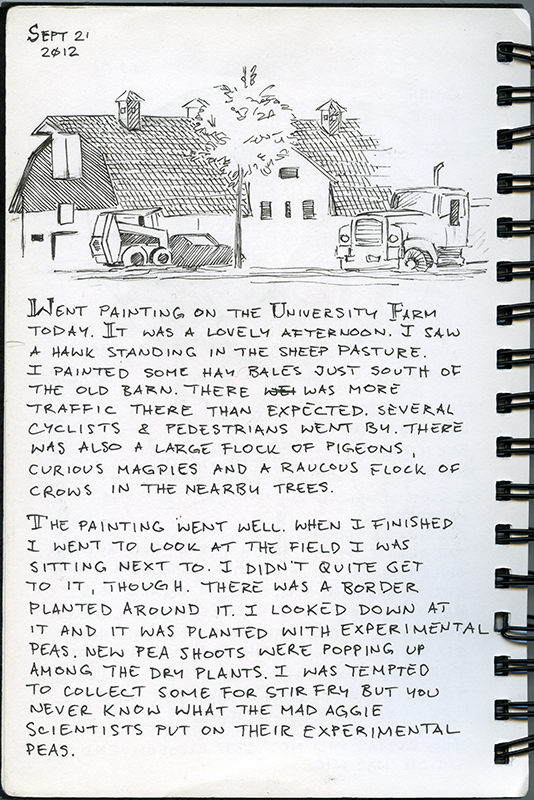 SEPT 21
2012
WENT PAINTING ON THE UNIVERSITY FARM
TODAY. IT WAS A LOVELY AFTERNOON. I SAW
A HAWK STANDING IN THE SHEEP PASTURE.
I PAINTED SOME HAY BALES JUST SOUTH OF
THE OLD BARN. THERE WAS MORE
TRAFFIC THERE THAN EXPECTED. SEVERAL
CYCLISTS & PEDESTRIANS WENT BY. THERE
WAS ALSO A LARGE FLOCK OF PIGEONS,
CURIOUS MAGPIES AND A RAUCOUS FLOCK OF
CROWS IN THE NEARBY TREES.
THE PAINTING WENT WELL. WHEN I FINISHED
I WENT TO LOOK AT THE FIELD I WAS
SITTING NEXT TO. I DIDN'T QUITE GET
TO IT, THOUGH. THERE WAS A BORDER
PLANTED AROUND IT. I LOOKED DOWN AT
IT AND IT WAS PLANTED WITH EXPERIMENTAL
PEAS. NEW PEA SHOOTS WERE POPPING UP
AMONG THE DRY PLANTS. I WAS TEMPTED
TO COLLECT SOME FOR STIR FRY BUT YOU
NEVER KNOW WHAT THE MAD AGGIE
SCIENTISTS PUT ON THEIR EXPERIMENTAL
PEAS.